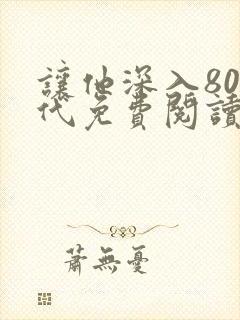 讓他深入80
代免費閱讀
蕭無憂